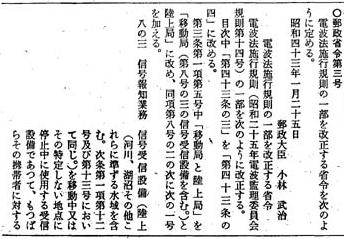 〇郵政省令第三号
電波法施行規則の一部を改正する省令を次のよ
うに定める。
昭和四十三年一月二十五日
郵政大臣 小林 武治
電波法施行規則の一部を改正する省令
電波法施行規則(昭和二十五年電波監理委員会
規則第十四号)の一部を次のように改正する。
目次中「第四十三条の三」を「第四十三条の
四」に改める。
第三条第一項第五号中「移動局と陸上局」を
「移動局(第八号の三の信号受信設備を含む。)と
陸上局」に改め、同項第八号の二の次に次の一号
を加える。
八の三 信号報知業務 信号受信設備(陸上
(河川、湖沼その他こ
れらに準ずる水域を含
む。次条第一項第十二
号及び第十三号におい
て同じ。)を移動中又は
その特定しない地点に
停止中に使用する受信
設備であつて、もつぱ
らその携帯者に対する